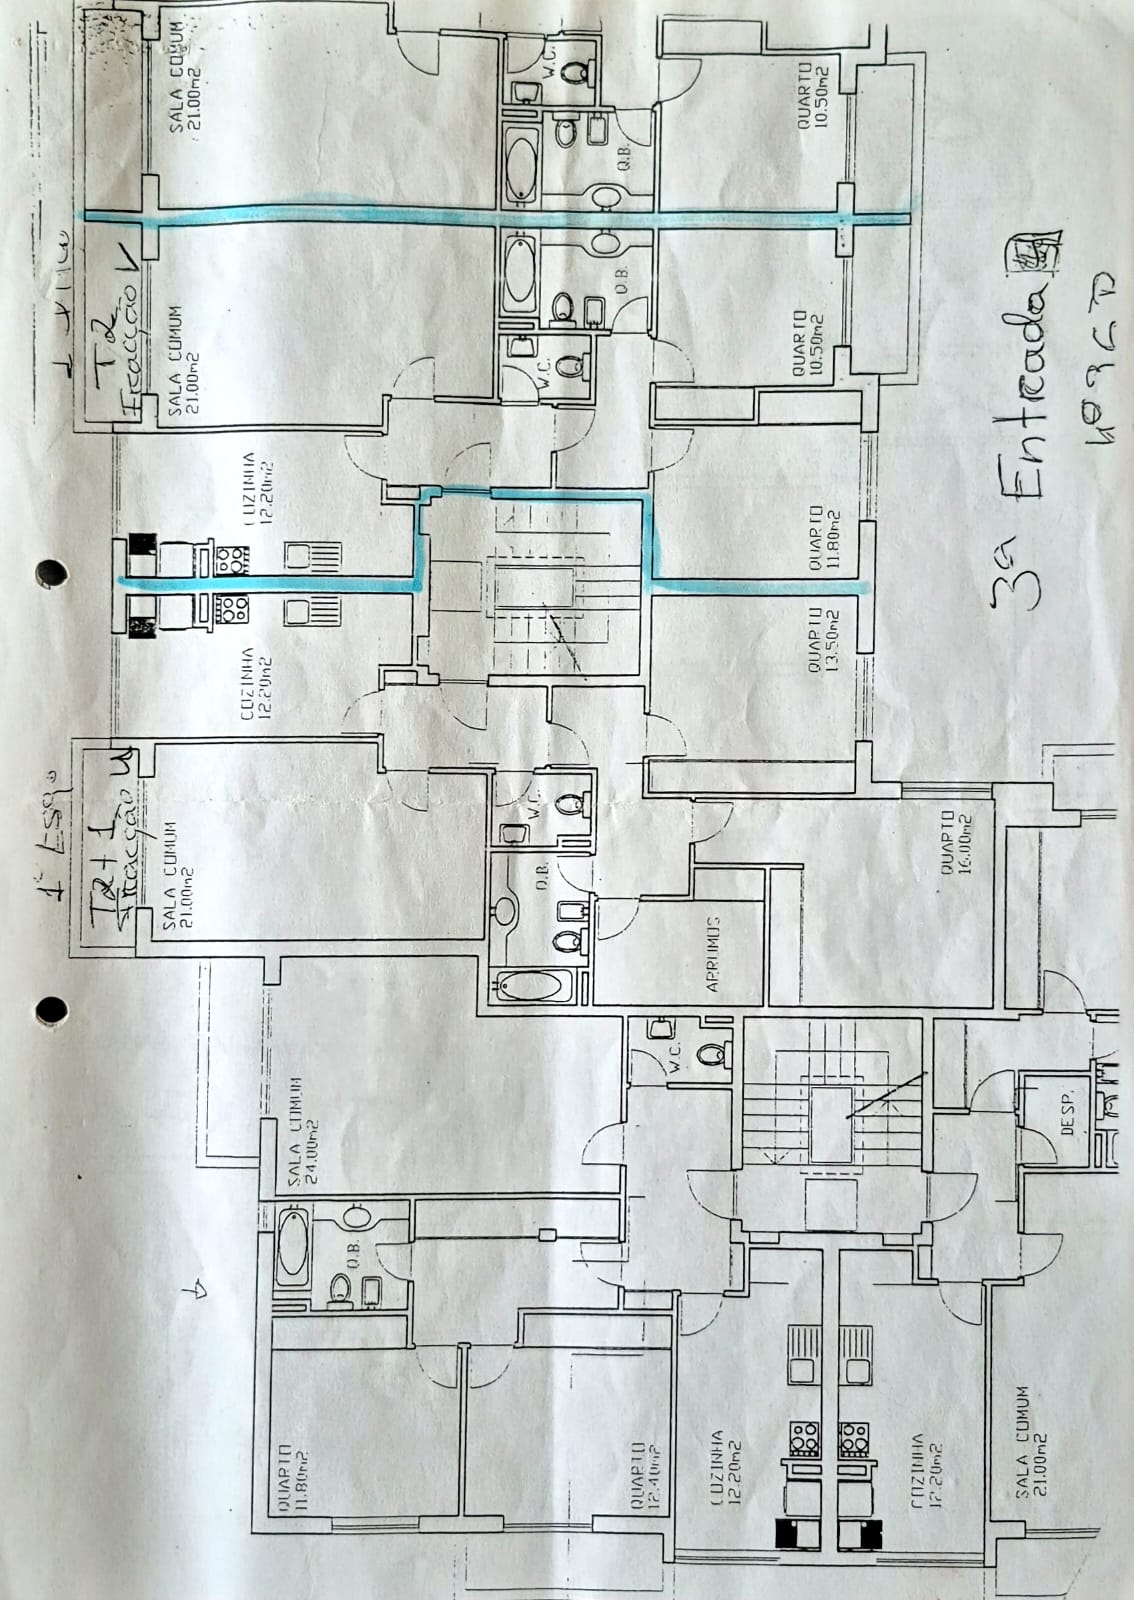 SALA COMUM
21.00m2
W.C.
Q.B.
QUARTO
10.50m2
T2
Fracção V
SALA COMUM
21.00m2
W.C.
Q.B.
QUARTO
10.50m2
COZINHA
12.20m2
QUARTO
11.80m2
3ª Entrada
COZINHA
12.20m2
QUARTO
13.50m2
1º Esqº
T2+1
Fracção U
SALA COMUM
21.00m2
W.C.
Q.B.
ARRUMOS
QUARTO
16.00m2
SALA COMUM
24.00m2
W.C.
DESP.
Q.B.
QUARTO
11.80m2
QUARTO
12.40m2
COZINHA
12.20m2
COZINHA
12.20m2
SALA COMUM
21.00m2